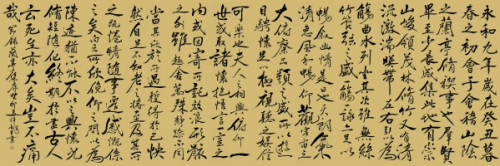 永和九年歲在
春之初會于會稽山陰
之蘭亭修禊事也群賢
畢至少長咸集此地有崇
山峻領茂林修竹又有清
流激湍暎帶左右引以為
觴曲水列坐其次雖無絲
竹管弦之盛一觴一詠
暢叙幽情是日也天朗氣
清惠風和暢仰觀宇宙之
大俯察品類之盛所以遊
目騁懷足以極視聽之娛信
可樂也夫人之相與俯仰一
世或取諸懷抱悟言一室之
內或因寄所託放浪形骸
之外雖趣舍萬殊靜躁不同
當其欣於所遇暫得於己快
然自足不知老之將至及其所
之既惓情隨事遷感慨係
之矣向之所欣俛仰之間以為
陳迹猶不能不以之興懷況
修短隨化終期於盡古人
云死生亦大矣豈不痛
哉